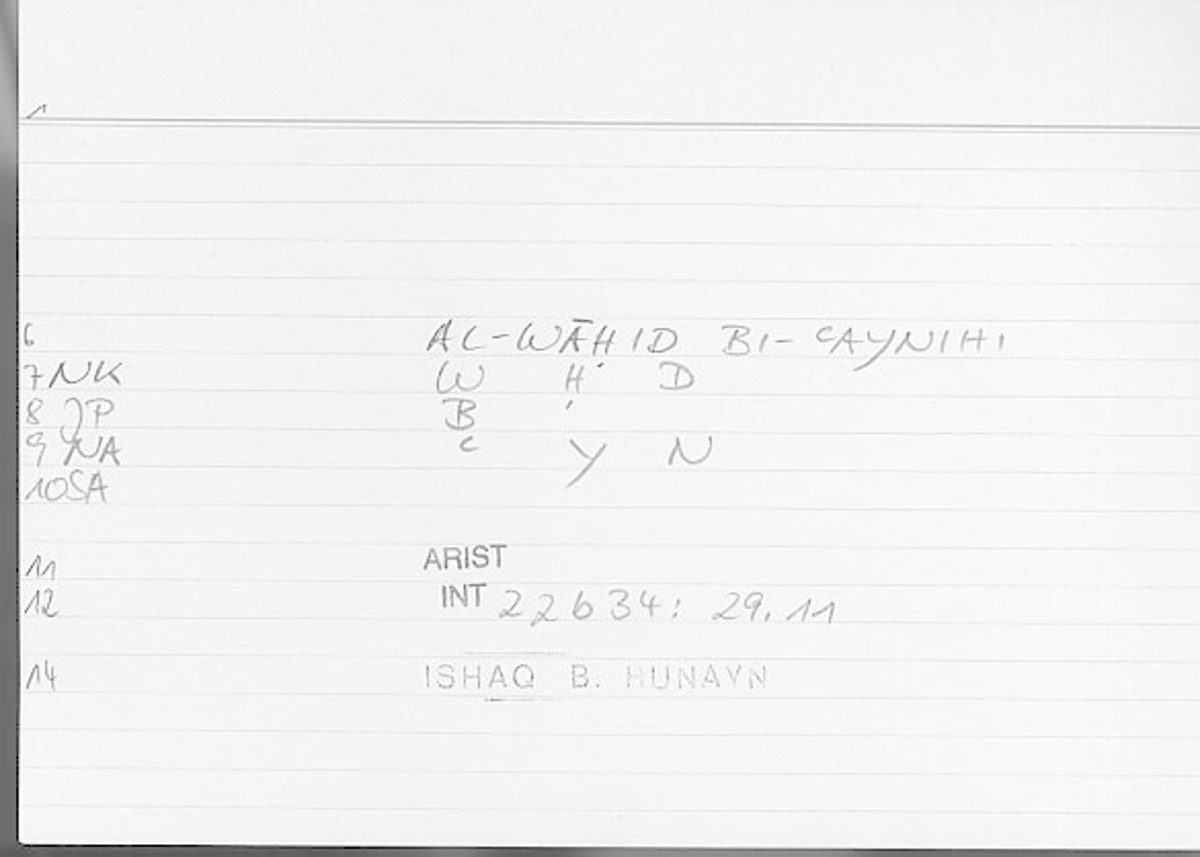 1
6 AL-WĀḤID BI-ʿAYNIHI
7 NK W Ḥ D
8 JP B ʾ
9 NA ʿ Y N
10 SA
11 ARIST
12 INT 22634: 29.11
14 ISHAQ B. HUNAYN